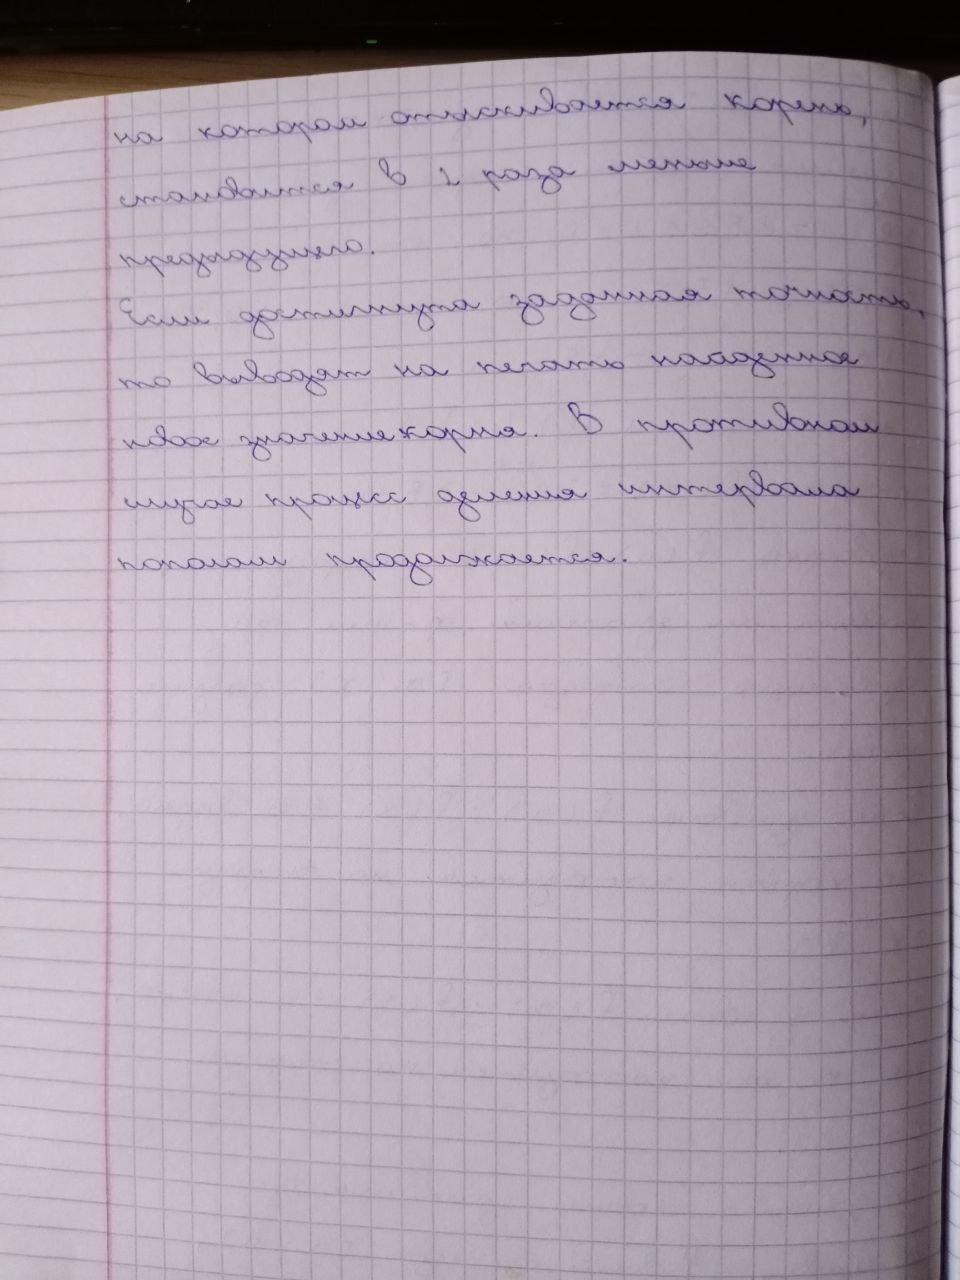 на котором отыскивается корень,
становится в 2 раза меньше
предыдущего.
Если достигнута заданная точность,
то выводят на печать найденное
новое значение корня. В противном
случае процесс деления интервала
пополам продолжается.